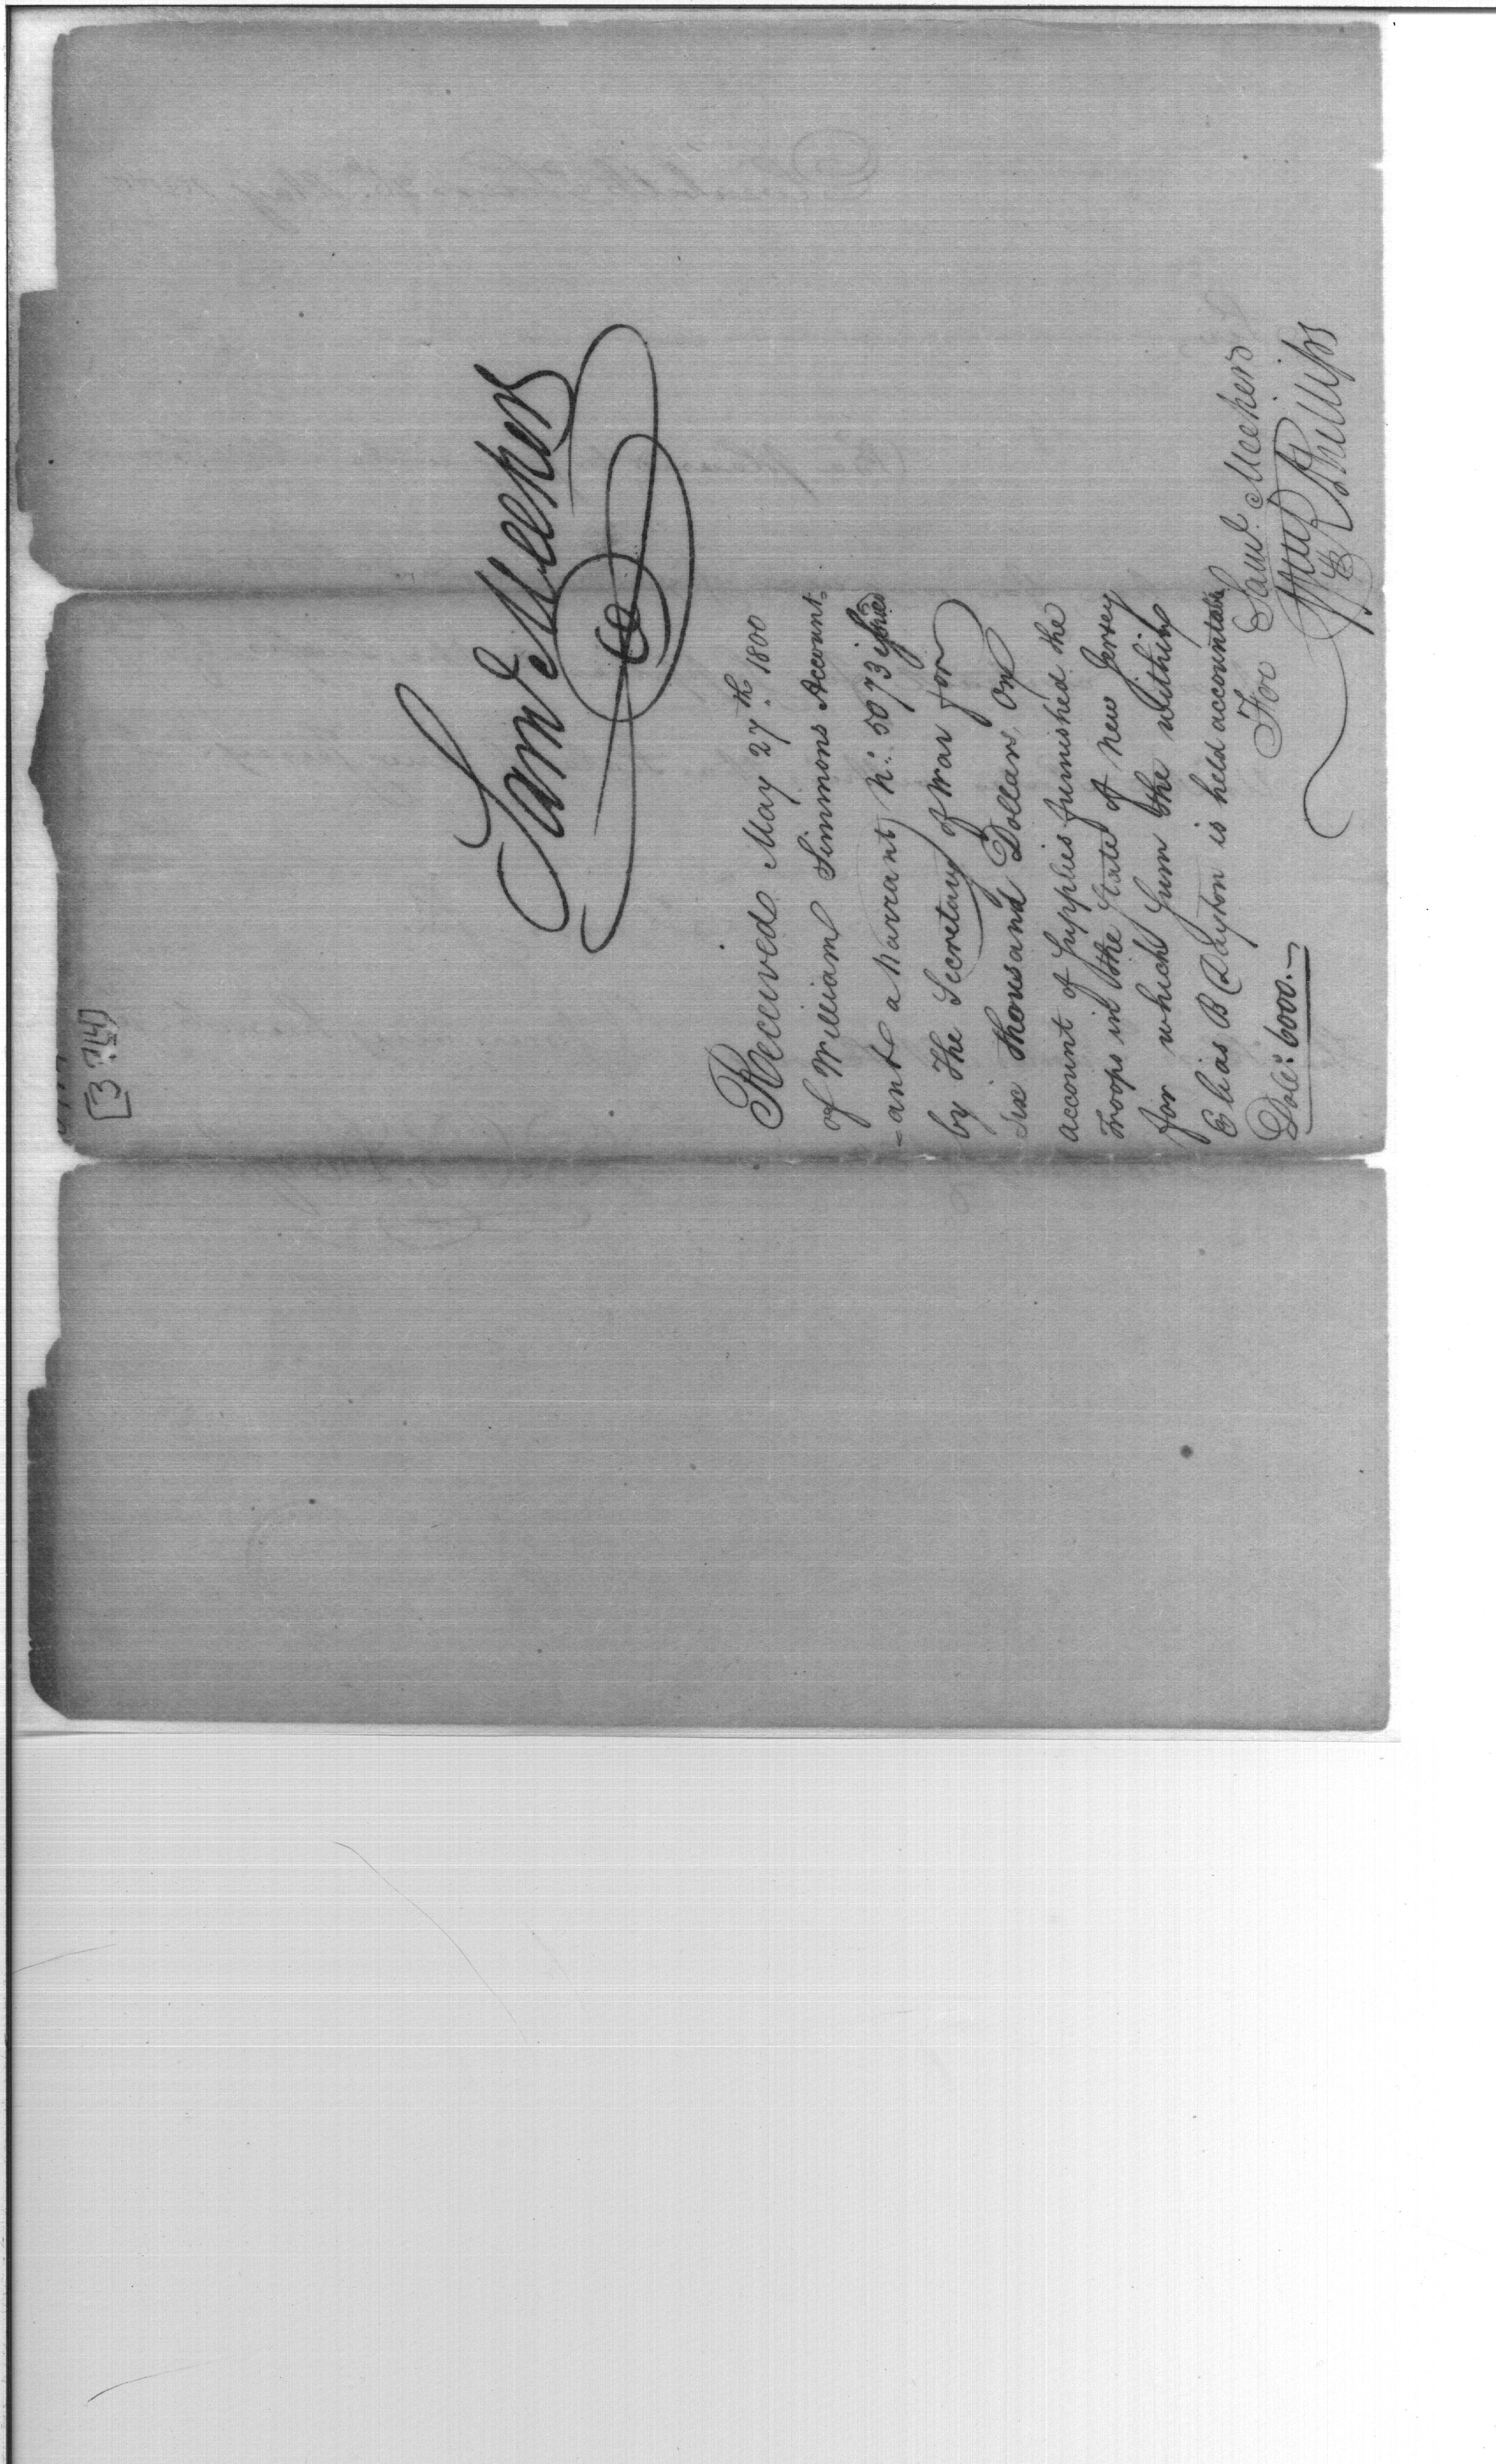 [3714]
Saml Meeker
Received May 27th. 1800
of William Simmons Account-
-ant a Warrant No: 5073 issued
by the Secretary of War for
Six thousand Dollars, on
account of Supplies furnished the
Troops in the State of New Jersey
for which Sum the within
Elias B Dayton is held accountable
For Saml. Meeker
Phillips
Dols: 6000.—